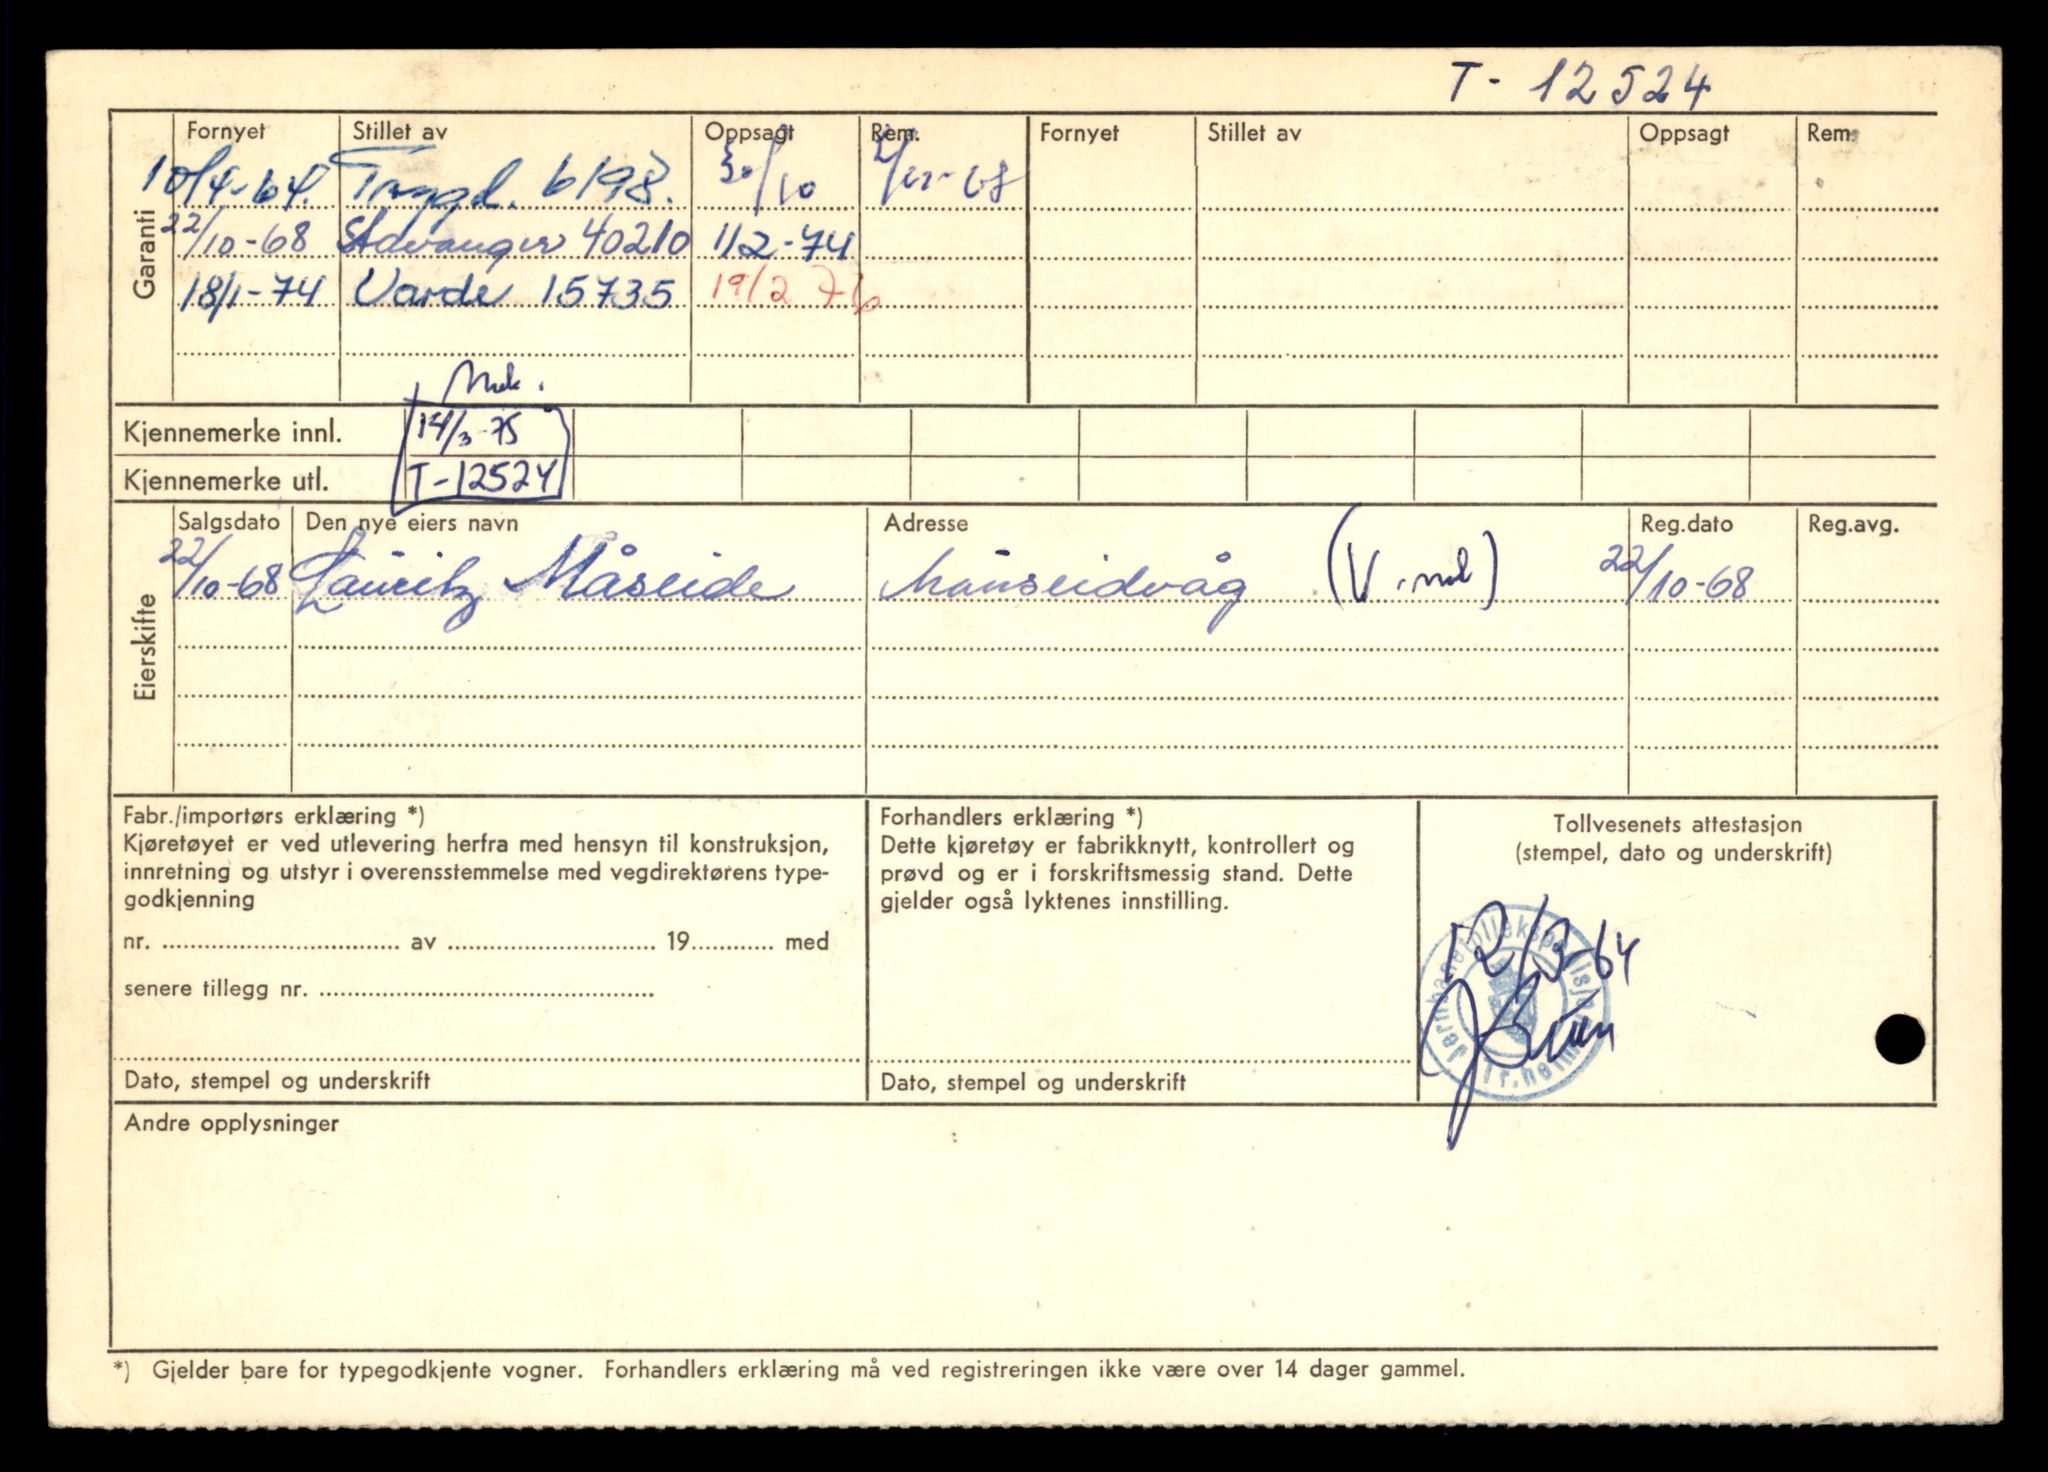 T - 12524
Garanti
Fornyet Stillet av Oppsagt Rem. Fornyet Stillet av Oppsagt Rem.
10/4-64. Trygd. 6198. 30/10
22/10-68 Stavanger 40210 1/2-74
18/1-74 Varde 15735 19/2 76
Kjennemerke innl. 14/3-75
Kjennemerke utl. T-12524
Eierskifte
Salgsdato Den nye eiers navn Adresse Reg.dato Reg.avg.
22/10-68 Lauritz Måseide Mauseidvåg 22/10-68
Fabr./importørs erklæring *)
Kjøretøyet er ved utlevering herfra med hensyn til konstruksjon,
innretning og utstyr i overensstemmelse med vegdirektørens type-
godkjenning
nr. .......... av .......... 19.......... med
senere tillegg nr. ..........
Dato, stempel og underskrift
Forhandlers erklæring *)
Dette kjøretøy er fabrikknytt, kontrollert og
prøvd og er i forskriftsmessig stand. Dette
gjelder også lyktenes innstilling.
Dato, stempel og underskrift
Tollvesenets attestasjon
(stempel, dato og underskrift)
12/3-64
Andre opplysninger
*) Gjelder bare for typegodkjente vogner. Forhandlers erklæring må ved registreringen ikke være over 14 dager gammel.